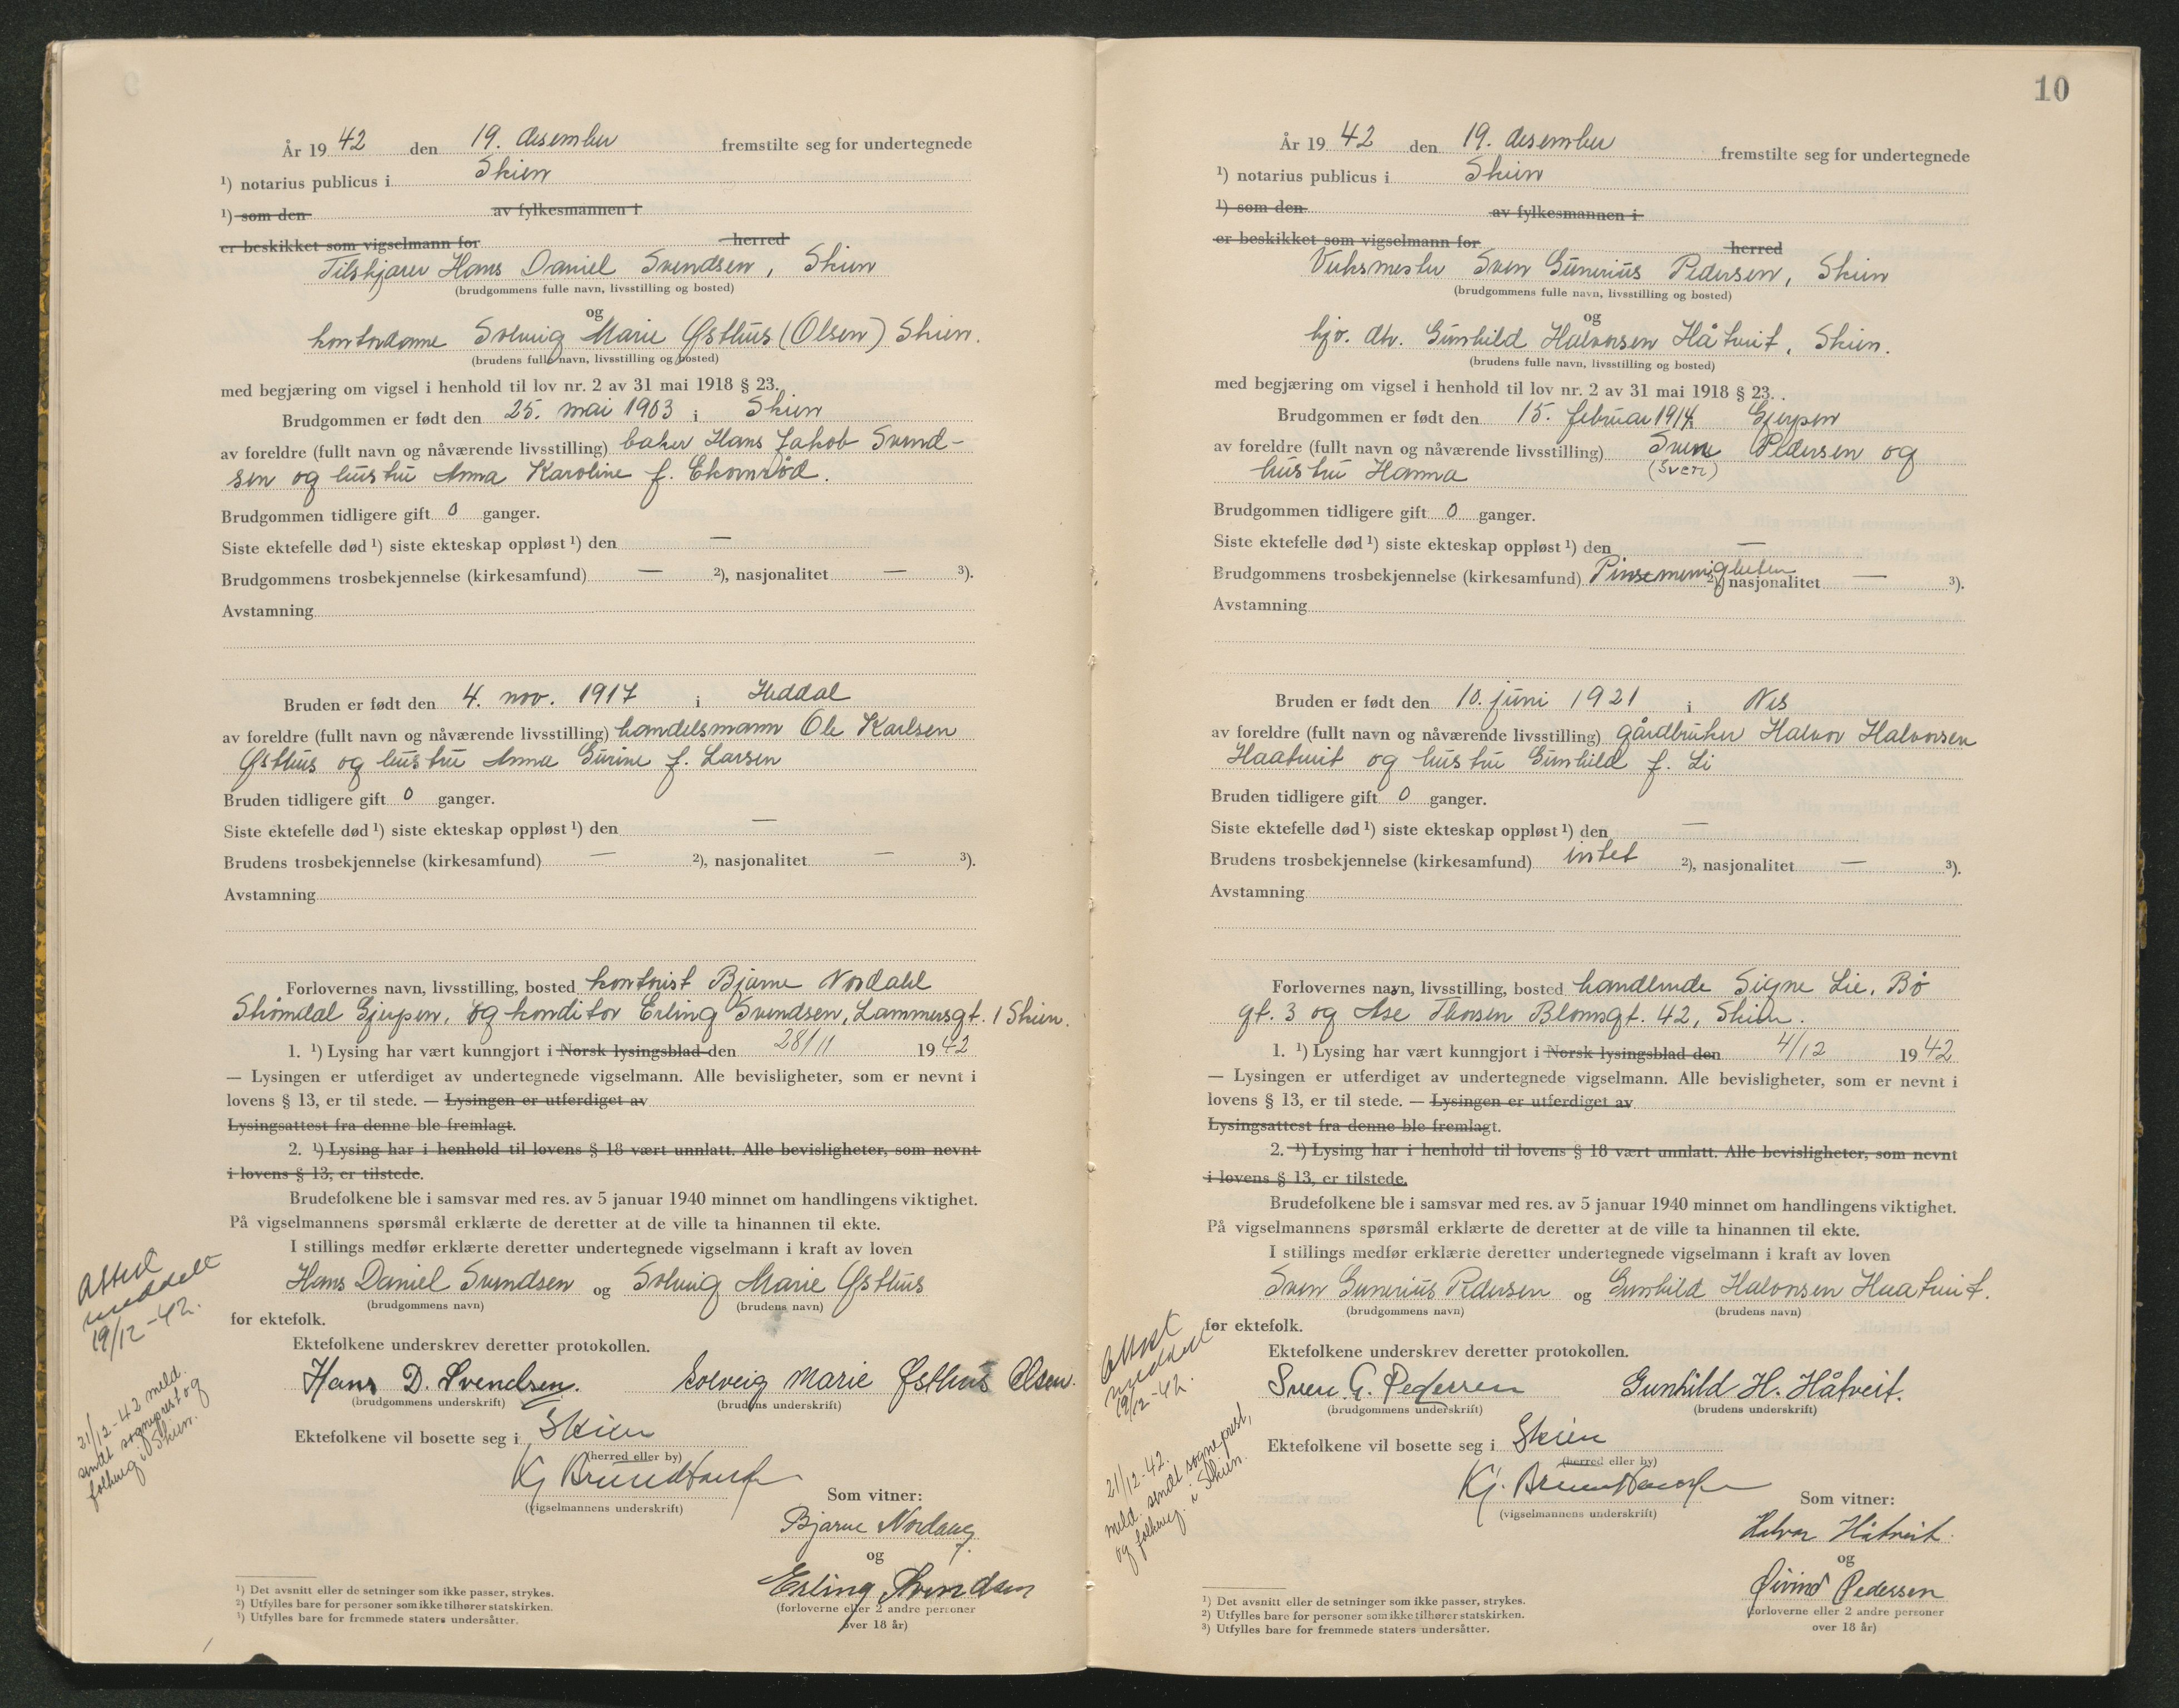 År 19 42 den 19. desember fremstilte seg for undertegnede
¹) notarius publicus i Skien
¹) som den av fylkesmannen i
er beskikket som vigselmann for herred
Tilskjærer Hans Daniel Svendsen, Skien
(brudgommens fulle navn, livsstilling og bosted)
og
kontordame Solveig Marie Østhus (Olsen) Skien.
(brudens fulle navn, livsstilling og bosted)
med begjæring om vigsel i henhold til lov nr. 2 av 31 mai 1918 § 23.
Brudgommen er født den 25. mai 1903 i Skien
av foreldre (fullt navn og nåværende livsstilling) baker Hans Jakob Svend-
sen og hustru Anna Karoline f. Ekornrød.
Brudgommen tidligere gift 0 ganger.
Siste ektefelle død ¹) siste ekteskap oppløst ¹) den —
Brudgommens trosbekjennelse (kirkesamfund) — ²), nasjonalitet — ³).
Avstamning
Bruden er født den 4. nov. 1917 i Heddal
av foreldre (fullt navn og nåværende livsstilling) handelsmann Ole Karlsen
Østhus og hustru Anna Gurine f. Larsen
Bruden tidligere gift 0 ganger.
Siste ektefelle død ¹) siste ekteskap oppløst ¹) den —
Brudens trosbekjennelse (kirkesamfund) — ²), nasjonalitet — ³).
Avstamning
Forlovernes navn, livsstilling, bosted kontorist Bjarne Nordahl
Strømdal Gjerpen, og konditor Erling Svendsen, Lammersgt. 1 Skien.
1. ¹) Lysing har vært kunngjort i Norsk lysingsblad den 28/11 19 42
— Lysingen er utferdiget av undertegnede vigselmann. Alle bevisligheter, som er nevnt i
lovens § 13, er til stede. — Lysingen er utferdiget av
Lysingsattest fra denne ble fremlagt.
2. ¹) Lysing har i henhold til lovens § 18 vært unnlatt. Alle bevisligheter, som nevnt
i lovens § 13, er tilstede.
Brudefolkene ble i samsvar med res. av 5 januar 1940 minnet om handlingens viktighet.
På vigselmannens spørsmål erklærte de deretter at de ville ta hinannen til ekte.
I stillings medfør erklærte deretter undertegnede vigselmann i kraft av loven
Hans Daniel Svendsen og Solveig Marie Østhus
(brudgommens navn) (brudens navn)
for ektefolk.
Ektefolkene underskrev deretter protokollen.
Hans D. Svendsen. Solveig Marie Østhus Olsen.
(brudgommens underskrift) (brudens underskrift)
Ektefolkene vil bosette seg i Skien
(herred eller by)
Kj Bruudtauf
(vigselmannens underskrift)
Som vitner:
Bjarne Nordahl
og
Erling Svendsen
(forloverne eller 2 andre personer
over 18 år)
Attest
meddelt
19/12-42.
21/12-42 meld.
sendt sogneprest og
folkereg i Skien.
¹) Det avsnitt eller de setninger som ikke passer, strykes.
²) Utfylles bare for personer som ikke tilhører statskirken.
³) Utfylles bare for fremmede staters undersåtter.
10
År 19 42 den 19. desember fremstilte seg for undertegnede
¹) notarius publicus i Skien
¹) som den av fylkesmannen i
er beskikket som vigselmann for herred
Verksmester Sven Gunerius Pedersen, Skien
(brudgommens fulle navn, livsstilling og bosted)
og
hjv. dtr. Gunhild Halvorsen Håtveit, Skien.
(brudens fulle navn, livsstilling og bosted)
med begjæring om vigsel i henhold til lov nr. 2 av 31 mai 1918 § 23.
Brudgommen er født den 15. februar 1914 i Gjerpen
av foreldre (fullt navn og nåværende livsstilling) Svene Pedersen og
hustru Hanna (Sven)
Brudgommen tidligere gift 0 ganger.
Siste ektefelle død ¹) siste ekteskap oppløst ¹) den —
Brudgommens trosbekjennelse (kirkesamfund) Pinsemenigheten ²), nasjonalitet — ³).
Avstamning
Bruden er født den 10. juni 1921 i Nes
av foreldre (fullt navn og nåværende livsstilling) gårdbruker Halvor Halvorsen
Haatveit og hustru Gunhild f. Li
Bruden tidligere gift 0 ganger.
Siste ektefelle død ¹) siste ekteskap oppløst ¹) den —
Brudens trosbekjennelse (kirkesamfund) intet ²), nasjonalitet — ³).
Avstamning
Forlovernes navn, livsstilling, bosted handlende Signe Lie, Bø
gt. 3 og Åse Thorsen Blomsgt. 42, Skien.
1. ¹) Lysing har vært kunngjort i Norsk lysingsblad den 4/12 19 42
— Lysingen er utferdiget av undertegnede vigselmann. Alle bevisligheter, som er nevnt i
lovens § 13, er til stede. — Lysingen er utferdiget av
Lysingsattest fra denne ble fremlagt.
2. ¹) Lysing har i henhold til lovens § 18 vært unnlatt. Alle bevisligheter, som nevnt
i lovens § 13, er tilstede.
Brudefolkene ble i samsvar med res. av 5 januar 1940 minnet om handlingens viktighet.
På vigselmannens spørsmål erklærte de deretter at de ville ta hinannen til ekte.
I stillings medfør erklærte deretter undertegnede vigselmann i kraft av loven
Sven Gunerius Pedersen og Gunhild Halvorsen Haatveit.
(brudgommens navn) (brudens navn)
for ektefolk.
Ektefolkene underskrev deretter protokollen.
Sven G. Pedersen Gunhild H. Håtveit.
(brudgommens underskrift) (brudens underskrift)
Ektefolkene vil bosette seg i Skien
(herred eller by)
Kj.
(vigselmannens underskrift)
Som vitner:
Halvor Håtveit
og
Øivind Pedersen
(forloverne eller 2 andre personer
over 18 år)
Attest
meddelt
19/12-42.
21/12-42.
meld. sendt sogneprest,
og folkereg. i Skien.
¹) Det avsnitt eller de setninger som ikke passer, strykes.
²) Utfylles bare for personer som ikke tilhører statskirken.
³) Utfylles bare for fremmede staters undersåtter.